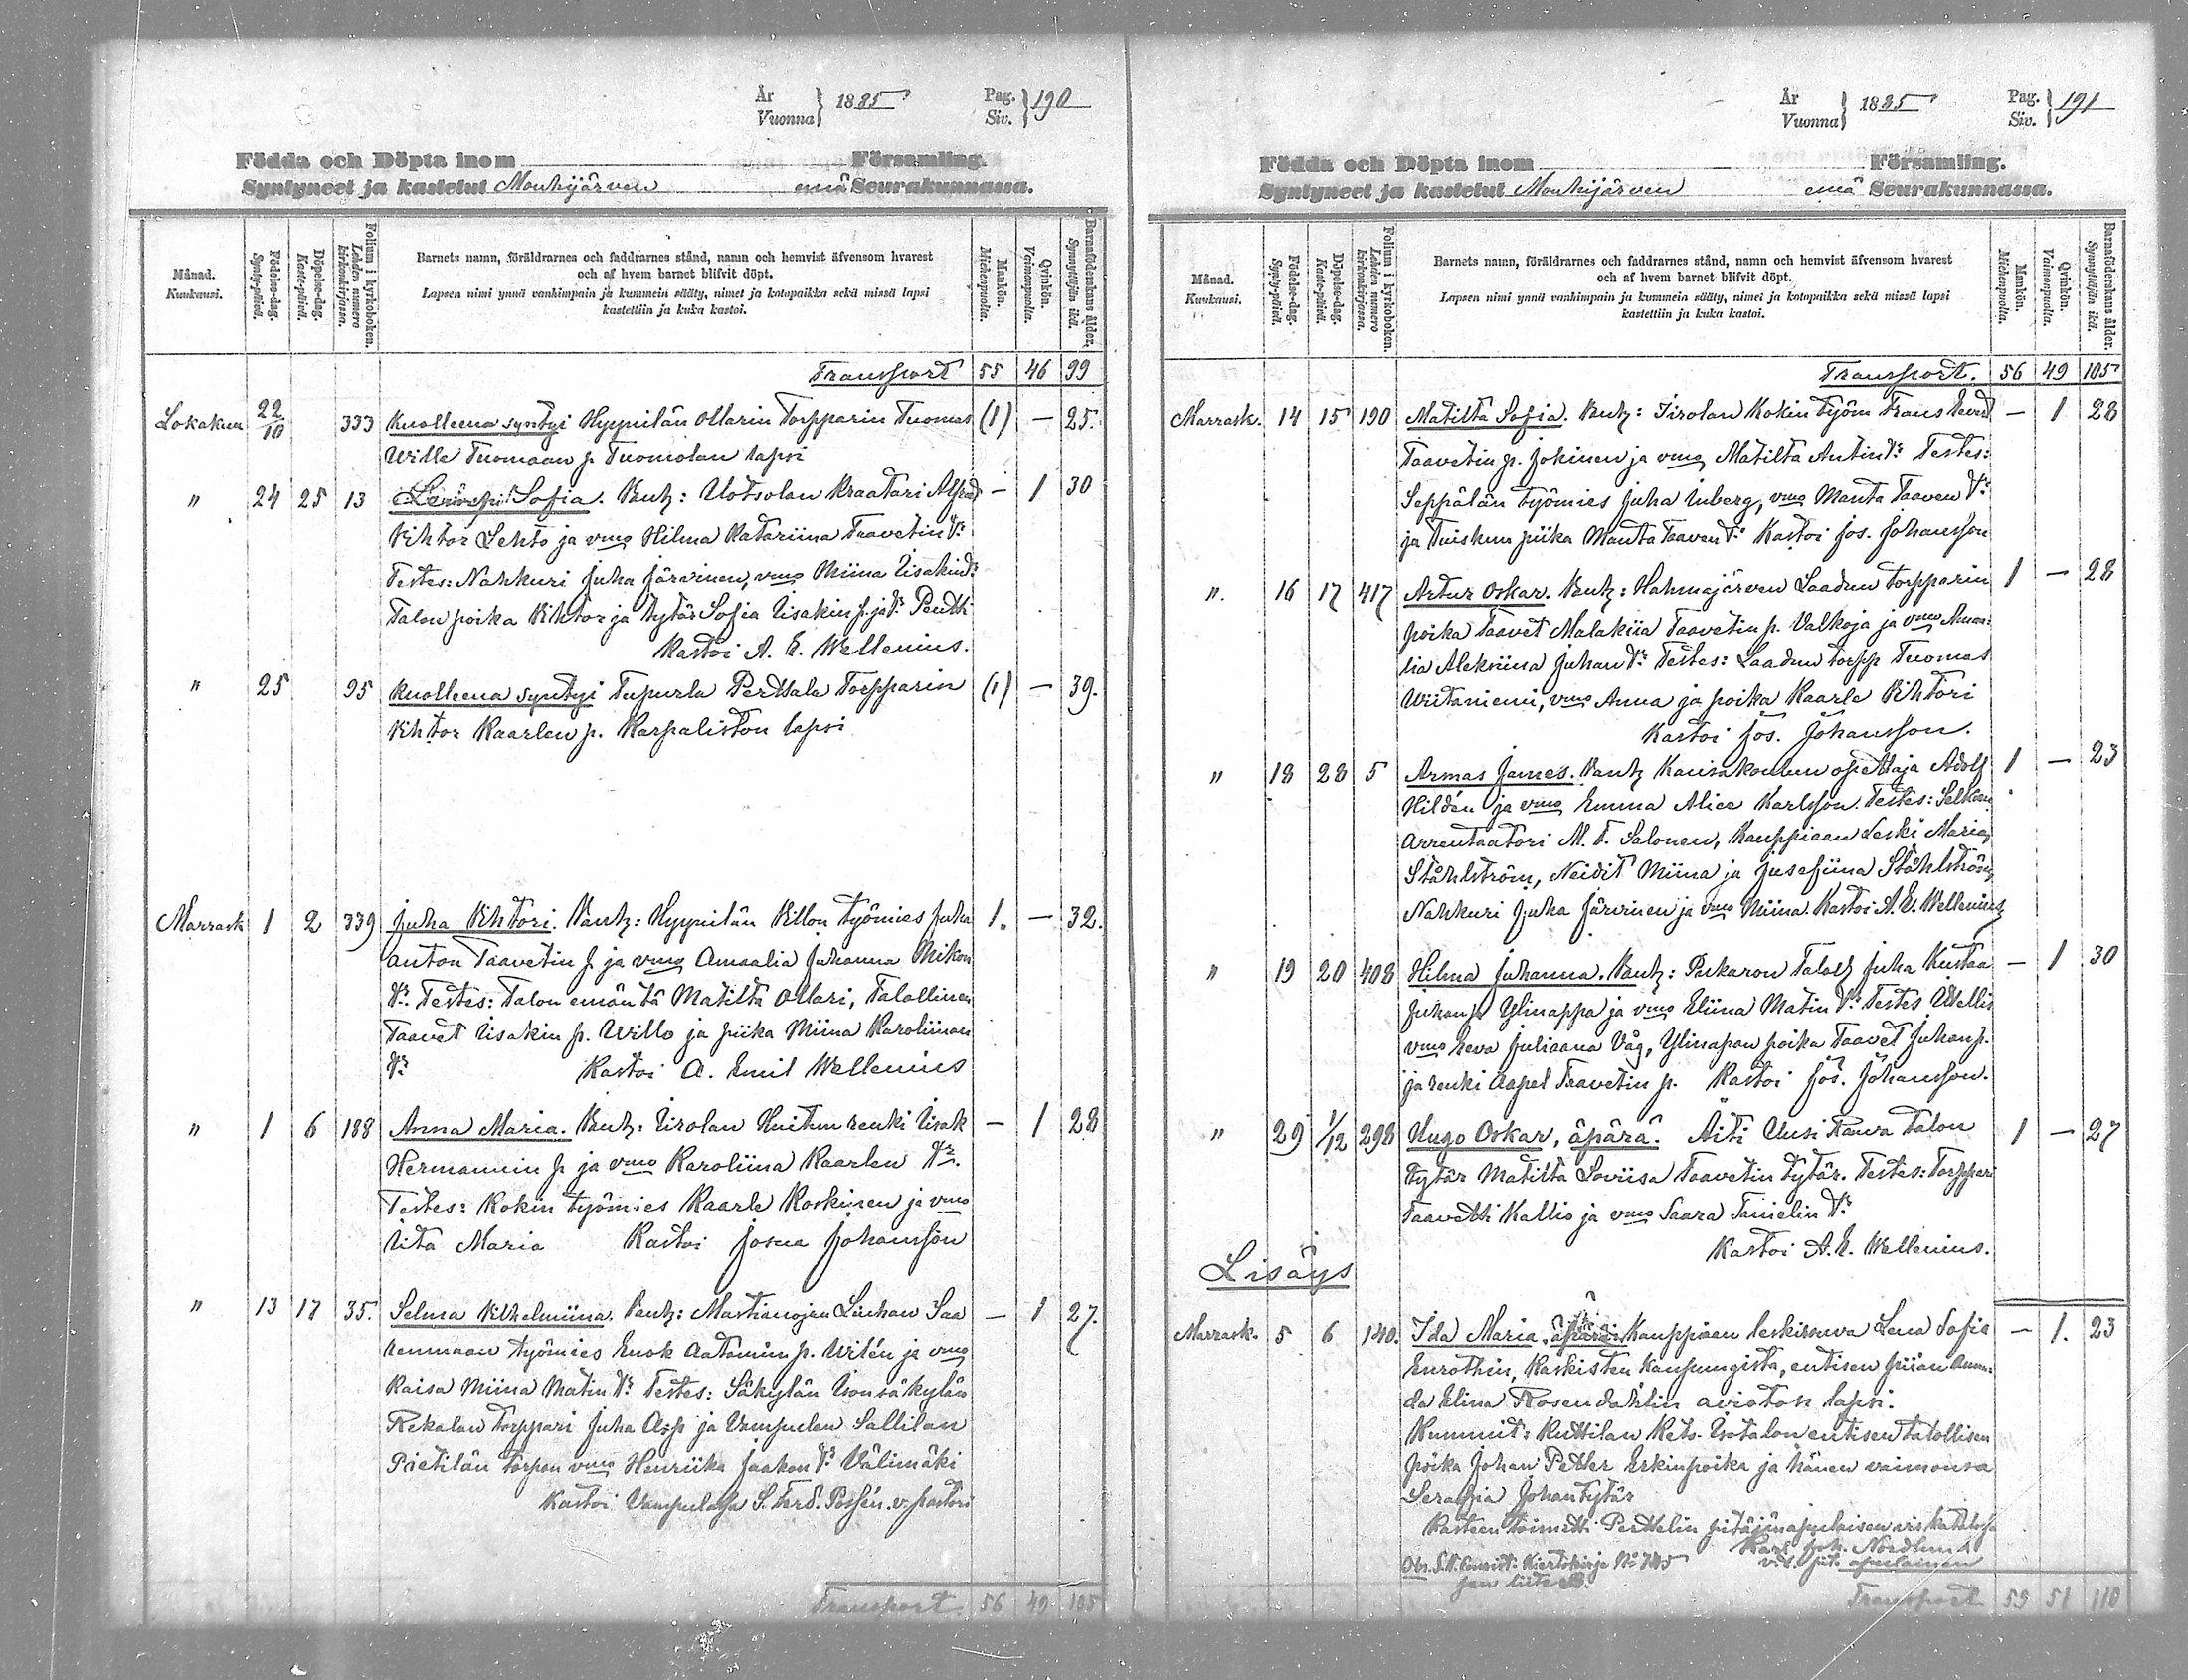 År
Vuonna } 1885
Pag.
Siv. } 190
Födda och Döpta inom Församling.
Syntyneet ja kastetut Mouhijärven emä Seurakunnassa.
Månad.
Kuukausi.
Födelse-dag.
Synty-päivä.
Döpelse-dag.
Kaste-päivä.
Folium i kyrkoboken.
Lehden numero kirkonkirjassa.
Barnets namn, föräldrarnes och faddrarnes stånd, namn och hemvist äfvensom hvarest
och af hvem barnet blifvit döpt.
Lapsen nimi ynnä vanhimpain ja kummein sääty, nimet ja kotopaikka sekä missä lapsi
kastettiin ja kuka kastoi.
Mankön.
Miehenpuolia.
Qvinkön.
Vaimonpuolia.
Barnaföderskans ålder.
Synnyttäjän ikä.
Transport 55 46 99
Lokakuu 22/10 333 Kuolleena syntyi Hyynilän Ollarin Torpparin Tuomas (1) — 25.
Wille Tuomaan p. Tuomolan lapsi
" 24 25 13 Sofia. Vanh: Uotsolan Kraatari Alfred — 1 30
Vihtor Lehto ja vmo Hilma Katariina Taavetin tr
Testes: Nahkuri Juha Järvinen, vmo Miina Iisakin tr
Talon poika Vihtor ja tytär Sofia Iisakin p. ja tr Pentti
Kastoi A. E. Wellenius.
" 25 95 Kuolleena syntyi Tupurla Perttala Torpparin (1) — 39.
Vihtor Kaarlen p. Karpaliston lapsi
Marrask 1 2 339 Juha Vihtori. Vanh: Hyynilän Villon työmies Juha 1. — 32.
Anton Taavetin p. ja vmo Amaalia Juhanna Mikon
tr. Testes: Talon emäntä Matilta Ollari, Talollinen
Taavet Iisakin p. Willo ja piika Miina Karoliinan
tr Kastoi A. Emil Wellenius
" 1 6 188 Anna Maria. Vanh: Iirolan Huitun renki Iisak — 1 28
Hermannin p ja vmo Karoliina Kaarlen tr.
Testes: Kokin työmies Kaarle Koskinen ja vmo
Iita Maria Kastoi Josua Johansson
" 13 17 35. Selma Vilhelmiina. Vanh: Martianojan Saa — 1 27.
renmaan työmies Enok Aatamin p. Witén ja vmo
Kaisa Miina Matin tr Testes: Säkylän Isonsäkylän
Rekolan torppari Juha Asp ja Vampulan Sallilan
Pietilän torpan vmo Henriika Jaakon tr Välimäki
Kastoi Vampulassa S. Ferd. Possén v: pastori
Transport. 56 49 105
År
Vuonna } 1885
Pag.
Siv. } 191
Födda och Döpta inom Församling.
Syntyneet ja kastetut Mouhijärven emä Seurakunnassa.
Månad.
Kuukausi.
Födelse-dag.
Synty-päivä.
Döpelse-dag.
Kaste-päivä.
Folium i kyrkoboken.
Lehden numero kirkonkirjassa.
Barnets namn, föräldrarnes och faddrarnes stånd, namn och hemvist äfvensom hvarest
och af hvem barnet blifvit döpt.
Lapsen nimi ynnä vanhimpain ja kummein sääty, nimei ja kotopaikka sekä missä lapsi
kastettiin ja kuka kastoi.
Mankön.
Miehenpuolia.
Qvinkön.
Vaimonpuolia.
Barnaföderskans ålder.
Synnyttäjän ikä.
Transport. 56 49 105
Marrask. 14 15 190 Matilta Sofia. Vanh: Iirolan Kokin työm Frans Eevert — 1 28
Taavetin p. Jokinen ja vmo Matilta Antin tr Testes:
Seppälän työmies Juha Inberg, vmo Manta Taaven tr
ja Tuiskun piika Manta Taaven tr Kastoi Jos. Johansson
" 16 17 417 Artur Oskar. Vanh: Hahmajärven Laadun torpparin 1 — 28
poika Taavet Malakiia Taavetin p. Valkoja ja vmo Aman-
tia Aleksiina Juhan tr Testes: Laadun torpp Tuomas
Wiitaniemi, vmo Anna ja poika Kaarle Vihtori
Kastoi Jos. Johansson.
" 18 28 5 Armas James. Vanh Kansakoulun opettaja Adolf 1 — 23
Hildén ja vmo Emma Alice Karlsson. Testes: Selkeen
Arrentaatori M. F. Salonen, Kauppiaan leski Maria
Ståhlström, Neidit Miina ja Josefiina Ståhlström
Nahkuri Juha Järvinen ja vmo Miina. Kastoi A. E. Wellenius
" 19 20 408 Hilma Juhanna. Vanh: Pukaron Talol Juha Kustaa — 1 30
Juhan p Ylinappa ja vmo Eliina Matin tr Testes
vmo Eeva Juliaana Våg, Ylinapan poika Taavet Juhan p.
ja renki Aapel Taavetin p. Kastoi Jos. Johansson.
" 29 1/12 298 Hugo Oskar, äpärä. Äiti Uusi Rauva talon 1 — 27
tytär Matilta Loviisa Taavetin tytär. Testes: Torppari
Taavetti Kallio ja vmo Saara tr
Kastoi A. E. Wellenius.
Lisäys
Marrask. 5 6 140. Ida Maria, Kauppiaan leskirouva Lena Sofia — 1. 23
Enrothin, Kaskisten kaupungista, entisen piian Aman-
da Elina Rosendahlin avioton lapsi.
Kummit: Ruttilan Keto-Isotalon entisen talollisen
poika Johan Petter Erkinpoika ja hänen vaimonsa
Serafia Johantytär
Kasteen toimitti Perttelin pitäjänapulaisen
Karl Joh. Nordlund
v.t. pit. apulainen
Kiertokirje No 745
Transport 55 51 110